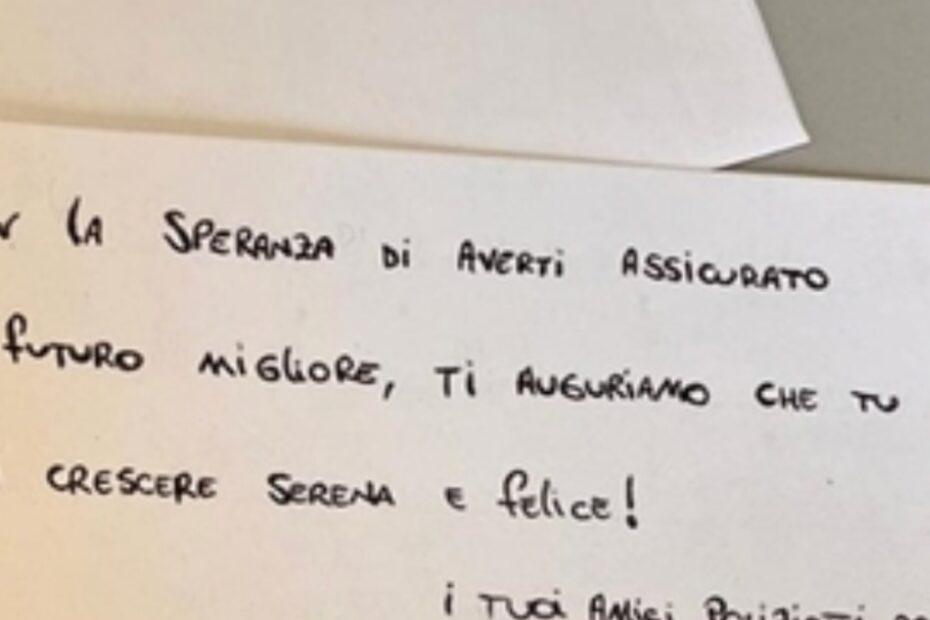 LA SPERANZA Di AVERTi ASSiCURATO
fUTURO MiGLiORE, Ti AUGURiAMO CHE TU
CRESCERE SERENA E felice!
i TUOi AMiCi POLiZiOTTi